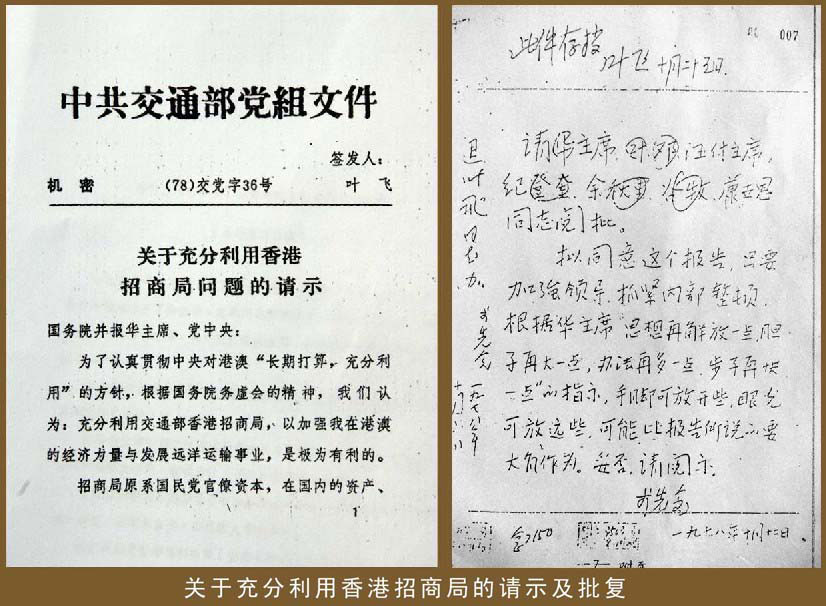 中共交通部党组文件
签发人：
机密 (78)交党字36号 叶飞
关于充分利用香港
招商局问题的请示
国务院并报华主席、党中央：
为了认真贯彻中央对港澳“长期打算，充分利
用”的方针，根据国务院务虚会的精神，我们认
为：充分利用交通部香港招商局，以加强我在港澳
的经济力量与发展远洋运输事业，是极为有利的。
招商局原系国民党官僚资本，在国内的资产、
1
007
此件存档
叶飞 十月二十五日
请华主席、叶、汪付主席，
纪登奎、余秋里、谷牧、康世恩
同志阅批。
拟同意这个报告，只要
加强领导，抓紧内部整顿，
根据华主席“思想再解放一点，胆
子再大一点，办法再多一点，步子再快
一点”的指示，手脚可放开些，眼光
可放远些，可能比报告所说的要
大有作为。妥否，请阅示。
李先念
一九七八年十月十二日
退叶飞同志办。
李先念
一九七八年
十月
2150
关于充分利用香港招商局的请示及批复